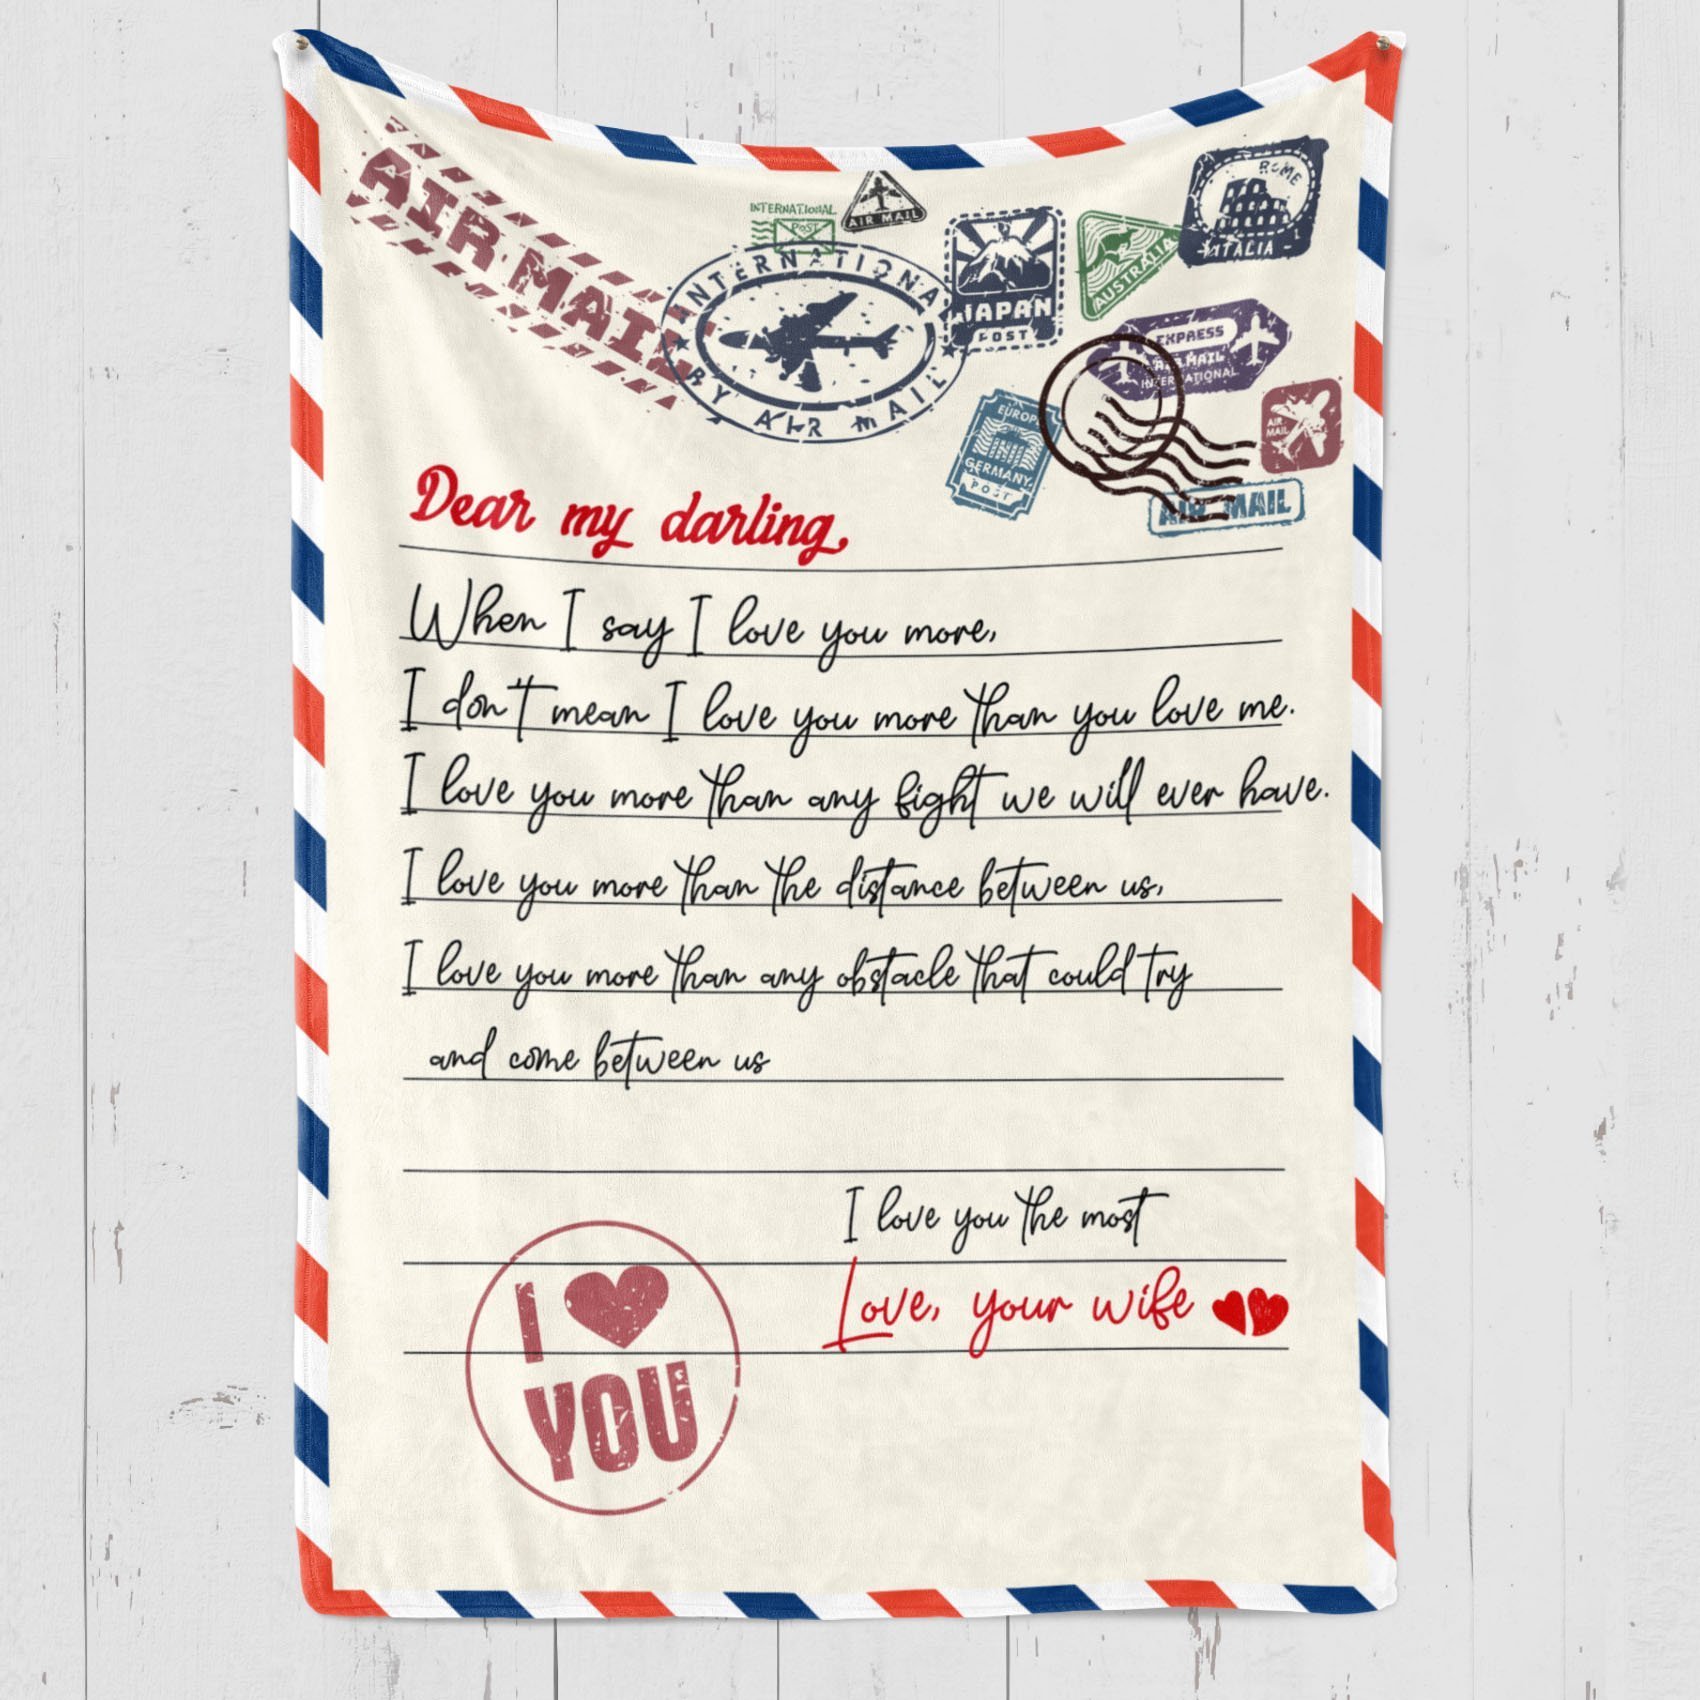 AIR MAIL
INTERNATIONAL
POST
AIR MAIL
INTERNATIONAL
BY AIR MAIL
JAPAN
POST
AUSTRALIA
ROME
ITALIA
EXPRESS
AIR MAIL
INTERNATIONAL
EUROPE
GERMANY
POST
AIR
MAIL
AIR MAIL
Dear my darling,
When I say I love you more,
I don't mean I love you more than you love me.
I love you more than any fight we will ever have.
I love you more than the distance between us,
I love you more than any obstacle that could try
and come between us
I love you the most
Love, your wife
I ♥
YOU